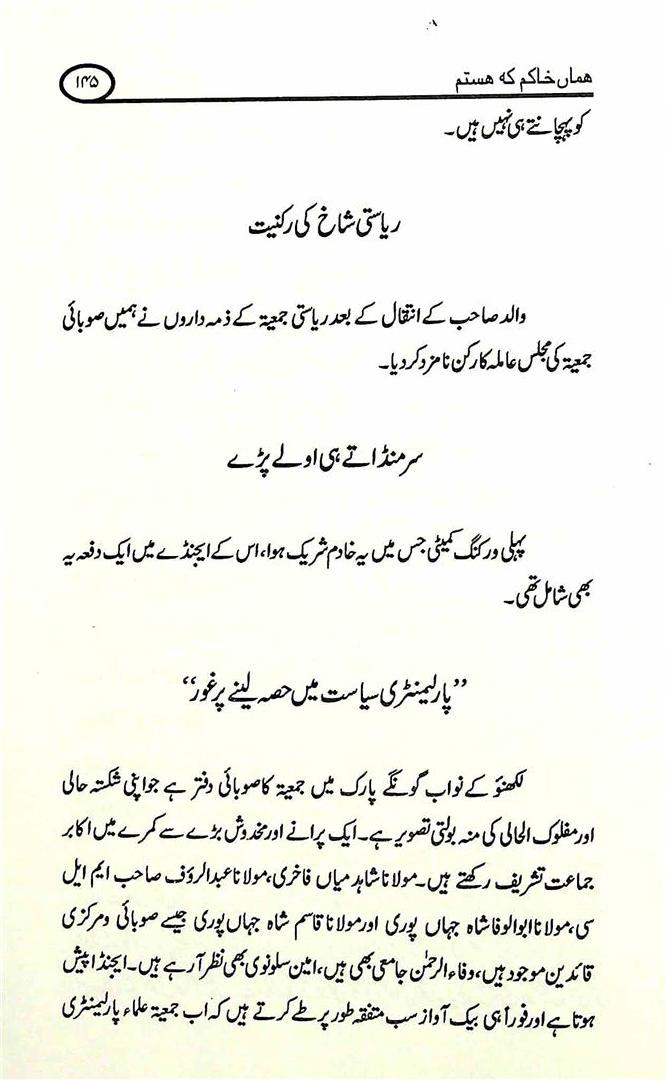 هماں خاکم که هستم
۱۴۵
کو پہچانتے ہی نہیں ہیں۔
ریاستی شاخ کی رکنیت
والد صاحب کے انتقال کے بعد ریاستی جمعیۃ کے ذمہ داروں نے ہمیں صوبائی
جمعیۃ کی مجلس عاملہ کا رکن نامزد کر دیا۔
سر منڈاتے ہی اولے پڑے
پہلی ورکنگ کمیٹی جس میں یہ خادم شریک ہوا، اس کے ایجنڈے میں ایک دفعہ یہ
بھی شامل تھی۔
”پارلیمنٹری سیاست میں حصہ لینے پر غور“
لکھنؤ کے نواب گونگے پارک میں جمعیۃ کا صوبائی دفتر ہے جو اپنی شکستہ حالی
اور مفلوک الحالی کی منہ بولتی تصویر ہے۔ ایک پرانے اور مخدوش بڑے سے کمرے میں اکابر
جماعت تشریف رکھتے ہیں۔ مولانا شاہد میاں فاخری، مولانا عبدالرؤف صاحب ایم ایل
سی، مولانا ابوالوفا شاہ جہاں پوری اور مولانا قاسم شاہ جہاں پوری جیسے صوبائی و مرکزی
قائدین موجود ہیں، وفاء الرحمٰن جامعی بھی ہیں، امین سلونوی بھی نظر آ رہے ہیں۔ ایجنڈا پیش
ہوتا ہے اور فوراً ہی بیک آواز سب متفقہ طور پر طے کرتے ہیں کہ اب جمعیۃ علماء پارلیمنٹری